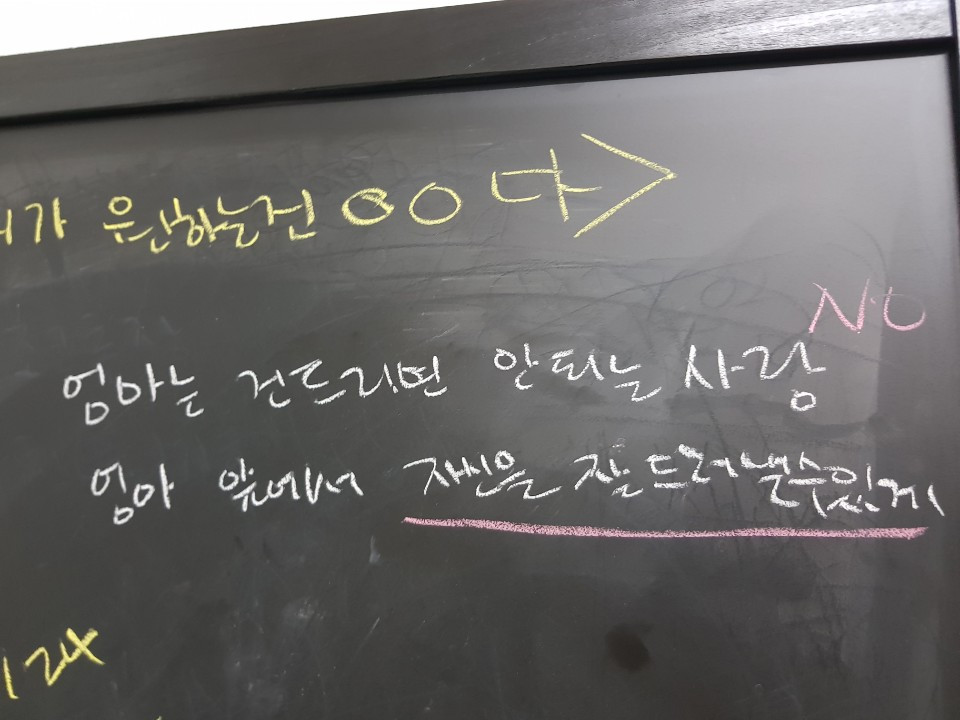 가 원하는건 OO 다>
NO
엄마는 건드리면 안되는 사람
엄마 앞에서 자신을 잘 드러낼수있게
124